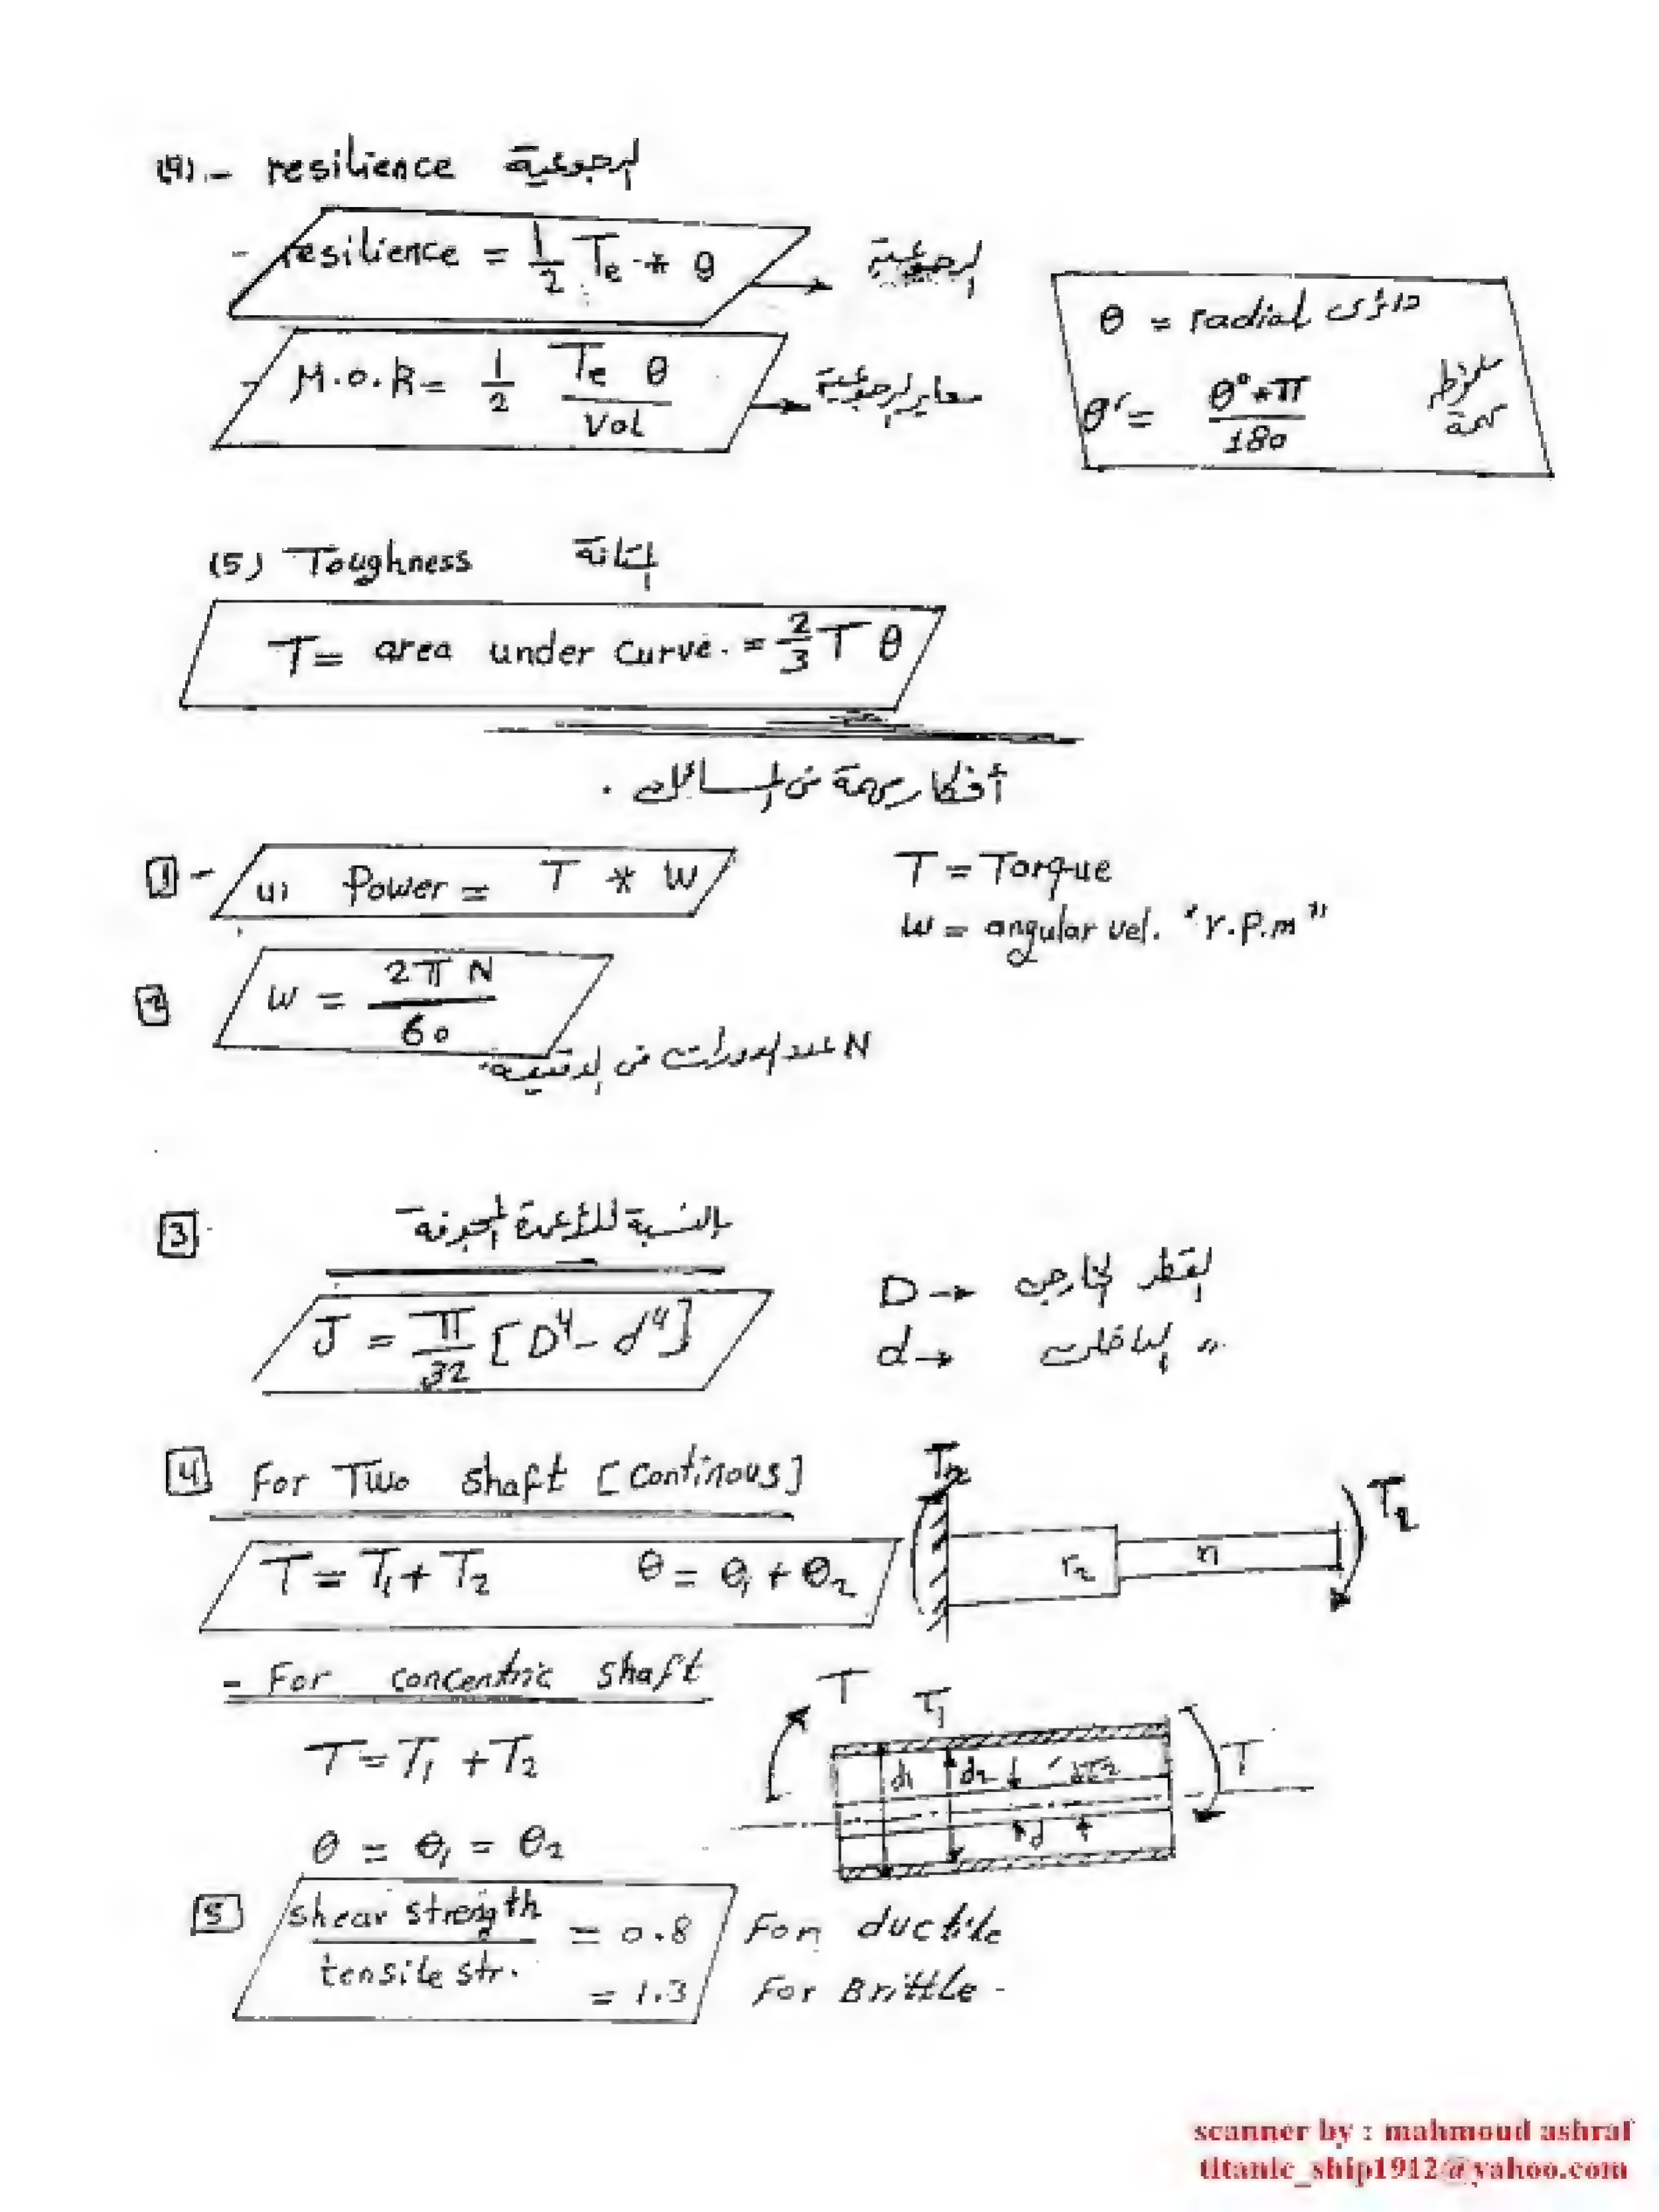 (4) - resilience الرجوعية
- resilience = 1/2 Te * θ → الرجوعية
- M.O.R = 1/2 Te θ / Vol → معاير الرجوعية
θ = radial دائرى
θʳ = θ° * π / 180 ملحوظة
(5) Toughness المتانة
T = area under curve. = 2/3 T θ
أفكار مهمة فى المسائل .
1 - Power = T * w
T = Torque
w = angular vel. "r.p.m"
2 w = 2π N / 60
N عدد الدورات فى الدقيقة .
3 بالنسبة للأعمدة المجوفة
J = π/32 [D⁴ - d⁴]
D → القطر الخارجى
d → " الداخلى
4 For Two shaft [Continous]
T = T1 + T2 θ = θ1 + θ2
T2 r2 r1 T1
- For concentric shaft
T = T1 + T2
θ = θ1 = θ2
T T1 d1 d2 d T
5 shear strength / tensile str. = 0.8 For ductile
= 1.3 For Brittle -
scanner by : mahmoud ashraf
titanic_ship1912@yahoo.com